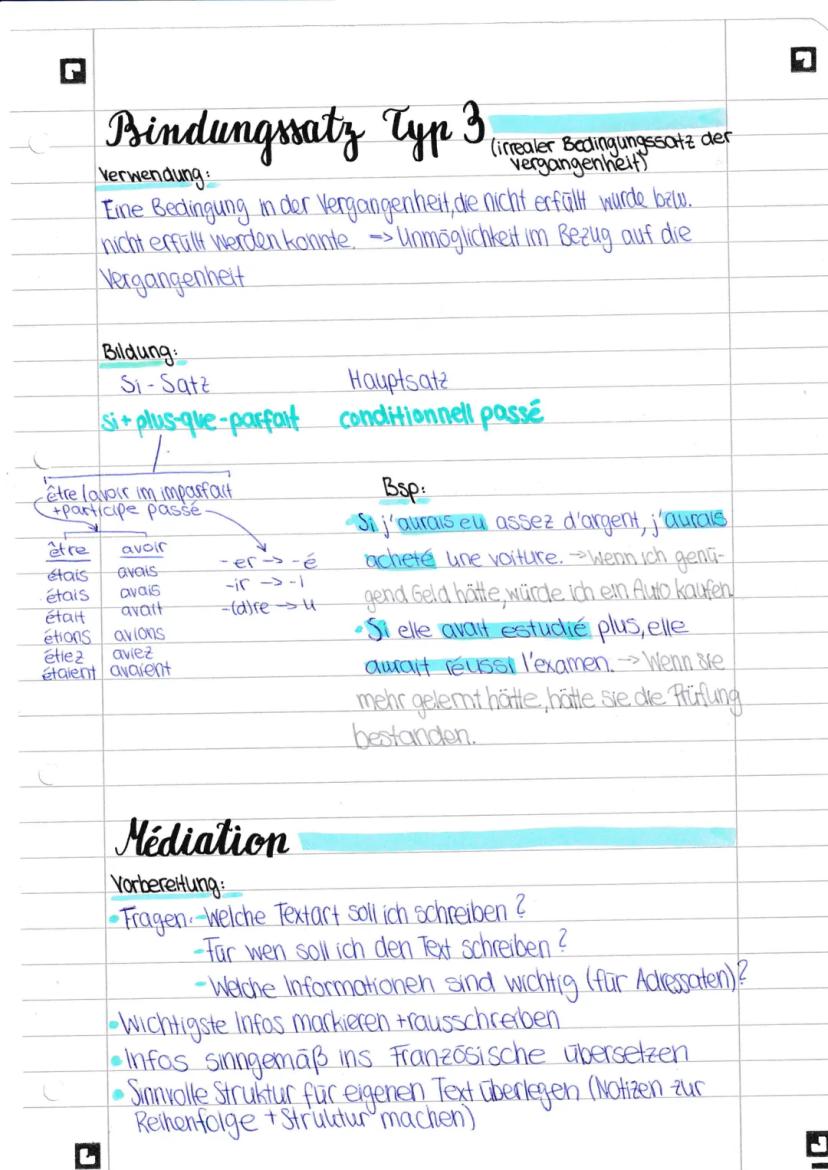 Bindungssatz Typ 3
(irrealer Bedingungssatz der
Vergangenheit)
Verwendung:
Eine Bedingung in der Vergangenheit, die nicht erfüllt wurde bzw.
nicht erfüllt werden konnte. -> Unmöglichkeit im Bezug auf die
Vergangenheit
Bildung:
Si-Satz Hauptsatz
si + plus-que-parfait conditionnell passé
être/avoir im imparfait
+participe passé
être avoir
étais avais
étais avais
était avait
étions avions
étiez aviez
étaient avaient
-er -> -é
-ir -> -i
-(d)re -> u
Bsp:
•Si j'aurais eu assez d'argent, j'aurais
acheté une voiture. -> Wenn ich genü-
gend Geld hätte, würde ich ein Auto kaufen
•Si elle avait estudié plus, elle
aurait réussi l'examen. -> Wenn sie
mehr gelernt hätte, hätte sie die Prüfung
bestanden.
Médiation
Vorbereitung:
•Fragen: -Welche Textart soll ich schreiben?
-Für wen soll ich den Text schreiben?
-Welche Informationen sind wichtig (für Adressaten)?
•Wichtigste Infos markieren + rausschreiben
•Infos sinngemäß ins Französische übersetzen
•Sinnvolle Struktur für eigenen Text überlegen (Notizen zur
Reihenfolge + Struktur machen)